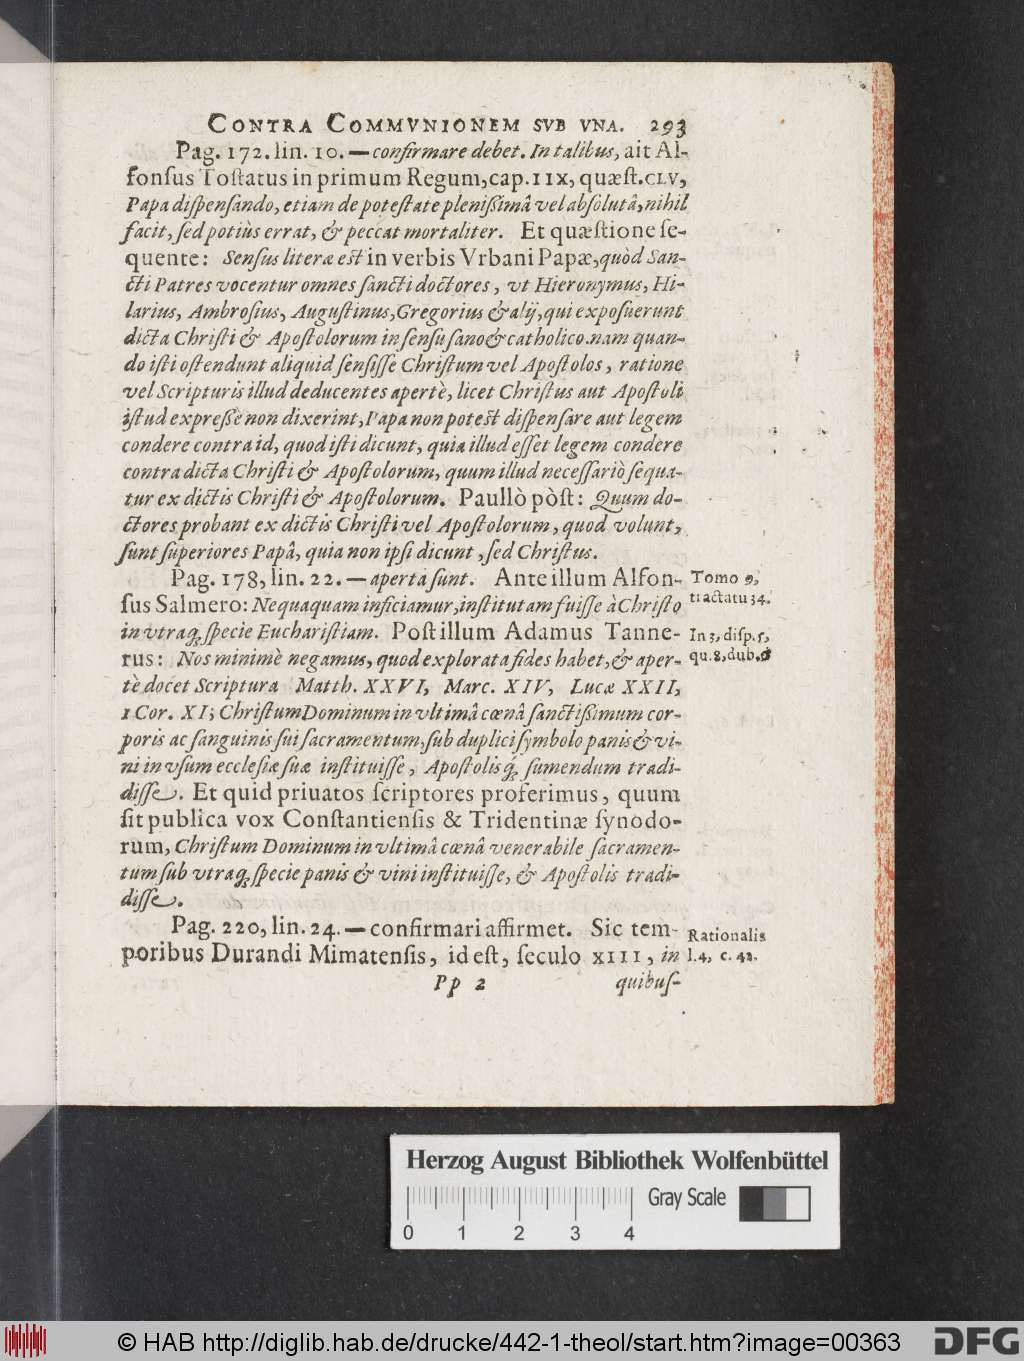 CONTRA COMMVNIONEM SVB VNA. 293
Pag. 172. lin. 10. — confirmare debet. In talibus, ait Al-
fonſus Toſtatus in primum Regum, cap. IIX, quæſt. CLV,
Papa diſpenſando, etiam de poteſtate pleniſſimâ vel abſolutâ, nihil
facit, ſed potiùs errat, & peccat mortaliter. Et quæſtione ſe-
quente: Senſus literæ eſt in verbis Vrbani Papæ, quòd San-
cti Patres vocentur omnes ſancti doctores, vt Hieronymus, Hi-
larius, Ambroſius, Auguſtinus, Gregorius & alij, qui expoſuerunt
dicta Chriſti & Apoſtolorum in ſenſu ſano & catholico. nam quan-
do iſti oſtendunt aliquid ſenſiſſe Chriſtum vel Apoſtolos, ratione
vel Scripturis illud deducentes apertè, licet Chriſtus aut Apoſtoli
iſtud expreſſè non dixerint, Papa non poteſt diſpenſare aut legem
condere contra id, quod iſti dicunt, quia illud eſſet legem condere
contra dicta Chriſti & Apoſtolorum, quum illud neceſſariò ſequa-
tur ex dictis Chriſti & Apoſtolorum. Paullò pòſt: Quum do-
ctores probant ex dictis Chriſti vel Apoſtolorum, quod volunt,
ſunt ſuperiores Papâ, quia non ipſi dicunt, ſed Chriſtus.
Pag. 178, lin. 22. — aperta ſunt. Ante illum Alfon-
ſus Salmero: Nequaquam inficiamur, inſtitutam fuiſſe à Chriſto
in vtraq; ſpecie Euchariſtiam. Poſt illum Adamus Tanne-
rus: Nos minimè negamus, quod explorata fides habet, & aper-
tè docet Scriptura Matth. XXVI, Marc. XIV, Lucæ XXII,
1 Cor. XI; Chriſtum Dominum in vltimâ cœnâ ſanctiſſimum cor-
poris ac ſanguinis ſui ſacramentum, ſub duplici ſymbolo panis & vi-
ni in vſum eccleſiæ ſuæ inſtituiſſe, Apoſtolisq́; ſumendum tradi-
diſſe. Et quid priuatos ſcriptores proferimus, quum
ſit publica vox Conſtantienſis & Tridentinæ ſynodo-
rum, Chriſtum Dominum in vltimâ cœnâ venerabile ſacramen-
tum ſub vtraq; ſpecie panis & vini inſtituiſſe, & Apoſtolis tradi-
diſſe.
Pag. 220, lin. 24. — confirmari affirmet. Sic tem-
poribus Durandi Mimatenſis, id eſt, ſeculo XIII, in
Pp 2 quibuſ-
Tomo 9,
tractatu 34.
In 3, diſp. 5,
qu. 8, dub. 6
Rationalis
l. 4, c. 42.
Herzog August Bibliothek Wolfenbüttel
Gray Scale
0 1 2 3 4
© HAB http://diglib.hab.de/drucke/442-1-theol/start.htm?image=00363
DFG